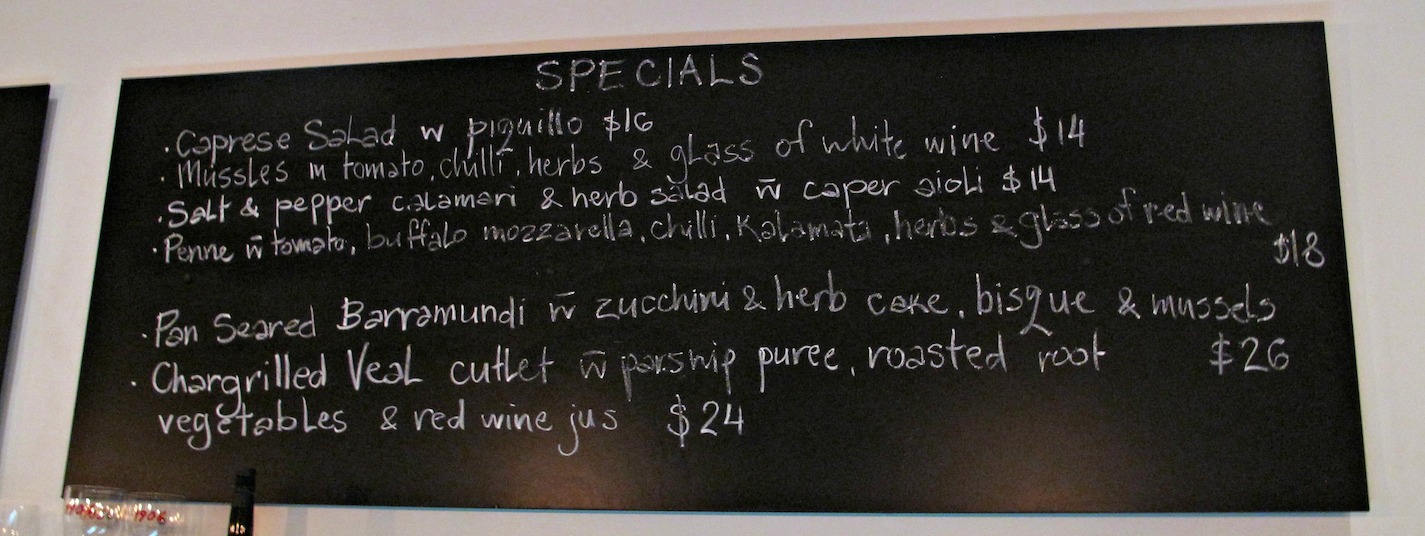 SPECIALS
· Caprese Salad w piquillo $16
· Mussles in tomato, chilli, herbs & glass of white wine $14
· Salt & pepper calamari & herb salad w̄ caper aioli $14
· Penne w̄ tomato, buffalo mozzarella, chilli, Kalamata, herbs & glass of red wine
$18
· Pan Seared Barramundi w̄ zucchini & herb cake, bisque & mussels
$26
· Chargrilled Veal cutlet w̄ parsnip puree, roasted root
vegetables & red wine jus $24
1906